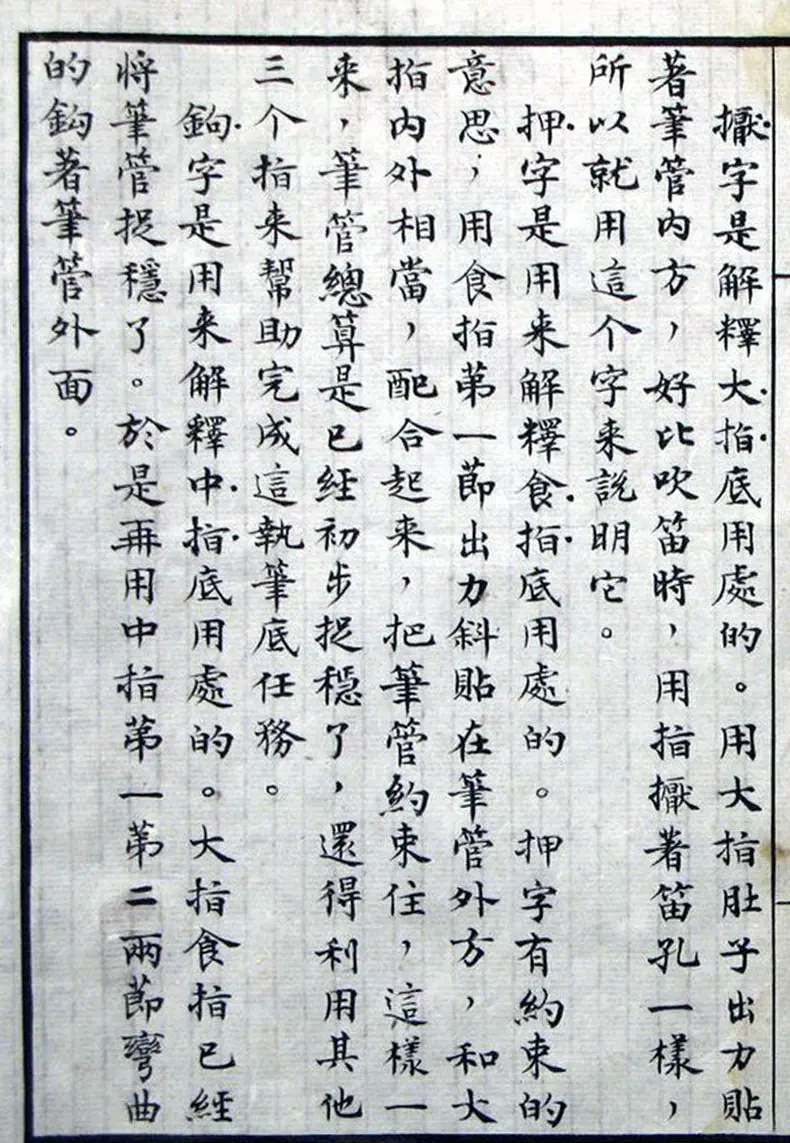 擫字是解釋大指底用處的。用大指肚子出力貼
著筆管内方，好比吹笛時，用指擫著笛孔一樣，
所以就用這个字来説明它。
押字是用来解釋食指底用處的。押字有約束的
意思，用食指第一節出力斜貼在筆管外方，和大
指内外相當，配合起来，把筆管約束住，這樣一
来，筆管總算是已經初步捉穩了，還得利用其他
三个指来幫助完成這執筆底任務。
鉤字是用来解釋中指底用處的。大指食指已經
将筆管捉穩了。於是再用中指第一第二兩節彎曲
的鉤著筆管外面。